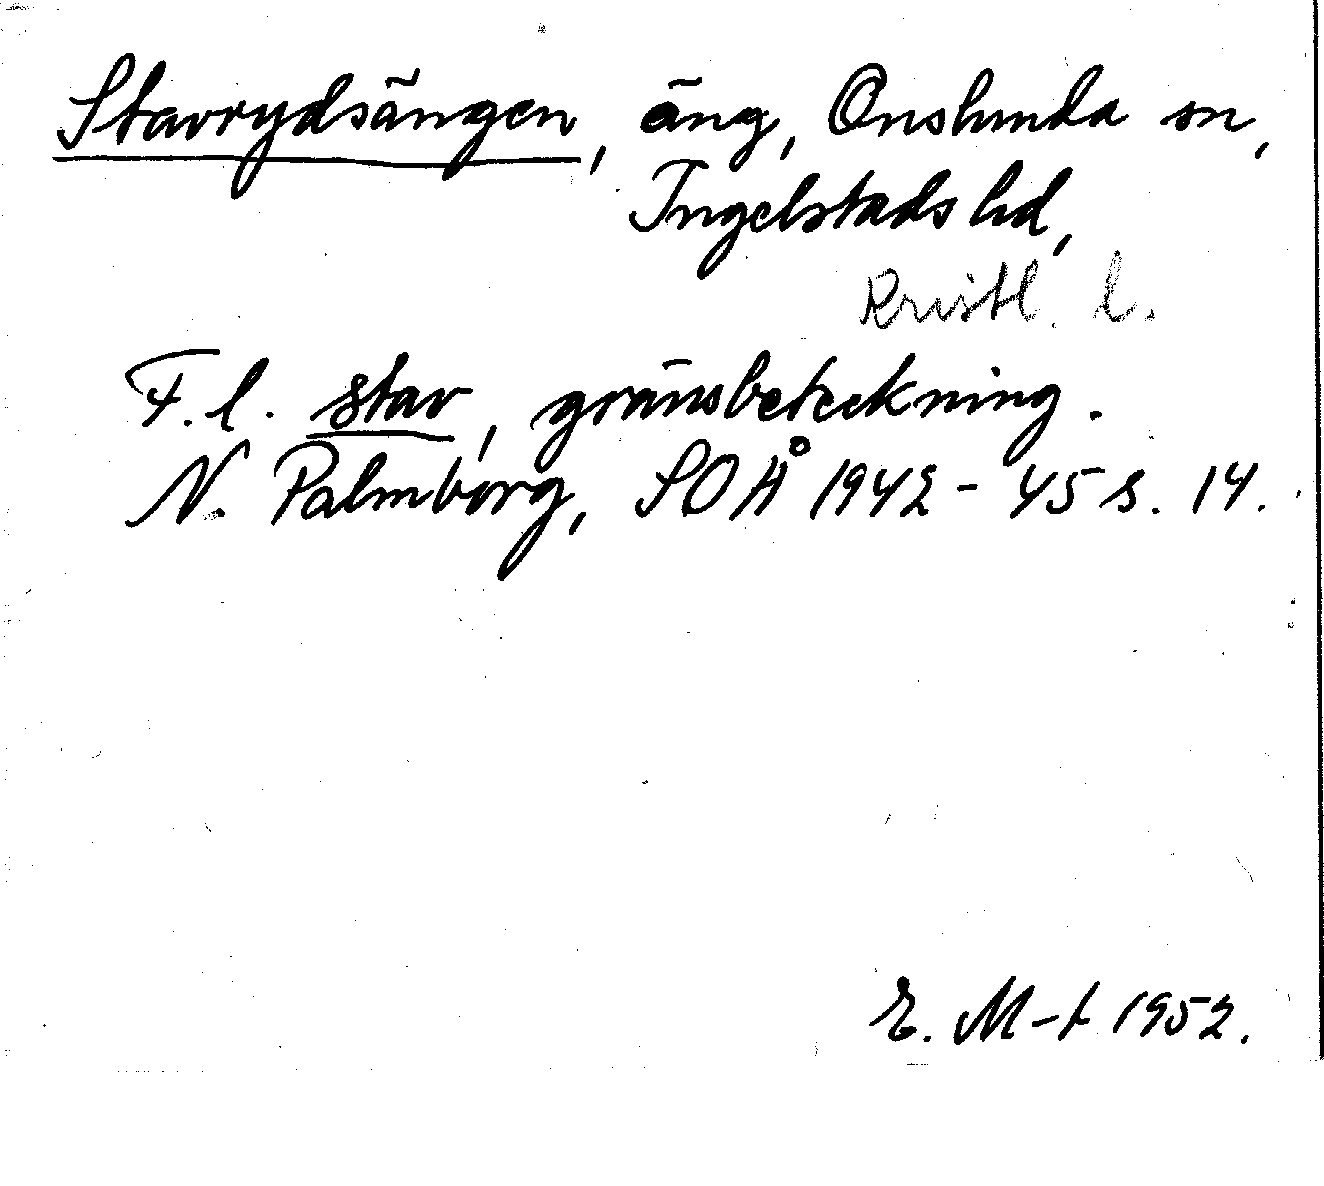 Stavrydsängen, äng, Onslunda sn,
Ingelstads hd,
Kristl. l.
F.l. stav, gränsbeteckning.
N. Palmborg, SOÅ 1942-45 s. 14.
E. M-t 1952.